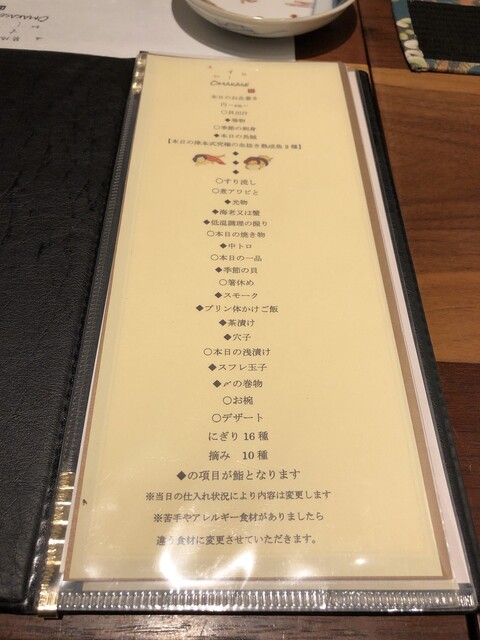 OMAKASE
本日のお品書き
○貝出汁
◆巻物
○季節の刺身
◆本日の鳥貝
【本日の津本式究極の血抜き熟成魚3種】
◆
◆
◆
○すり流し
○煮アワビと
◆光物
◆海老又は蟹
◆低温調理の握り
○本日の焼き物
◆中トロ
○本日の一品
◆季節の貝
○箸休め
◆スモーク
◆プリン体かけご飯
◆茶漬け
◆穴子
○本日の浅漬け
◆スフレ玉子
◆〆の巻物
○お椀
○デザート
にぎり 16 種
摘み 10 種
◆の項目が鮨となります
※当日の仕入れ状況により内容は変更します
※苦手やアレルギー食材がありましたら
違う食材に変更させていただきます。